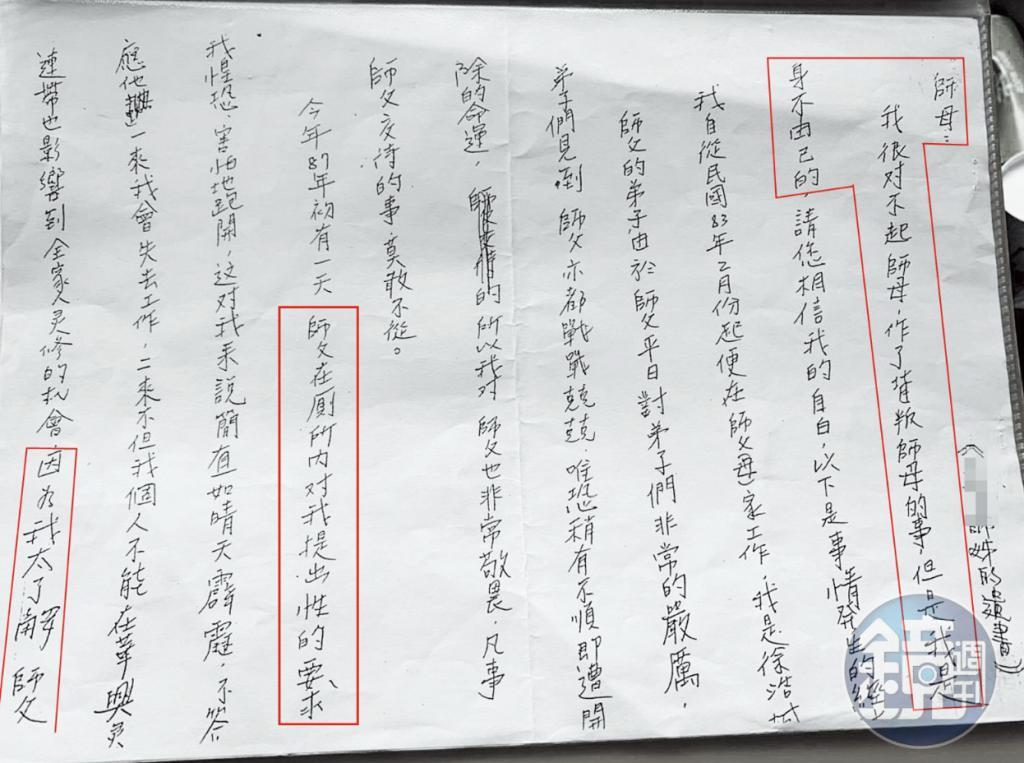 師姊的遺書)
師母:
我很对不起師母,作了背叛師母的事,但是我是
身不由己的,請您相信我的自白,以下是事情發生的經
我自從民國83年2月份起便在師父母家工作,我是徐浩
師父的弟子由於師父平日對弟子們非常的嚴厲,
弟子們見到 師父亦都戰戰兢兢,唯恐稍有不順即遭開
除的命運,的所以我对 師父也非常敬畏,凡事
師父交待的事,莫敢不從。
今年87年初有一天 師父在厠所内对我提出性的要求
我惶恐、害怕地跑開,这对我来説簡直如晴天霹靂,不答
應他一來我會失去工作,二來不但我個人不能在華興灵
連帶也影響到全家人灵修的机會,因為我太了解 師父
鏡週刊